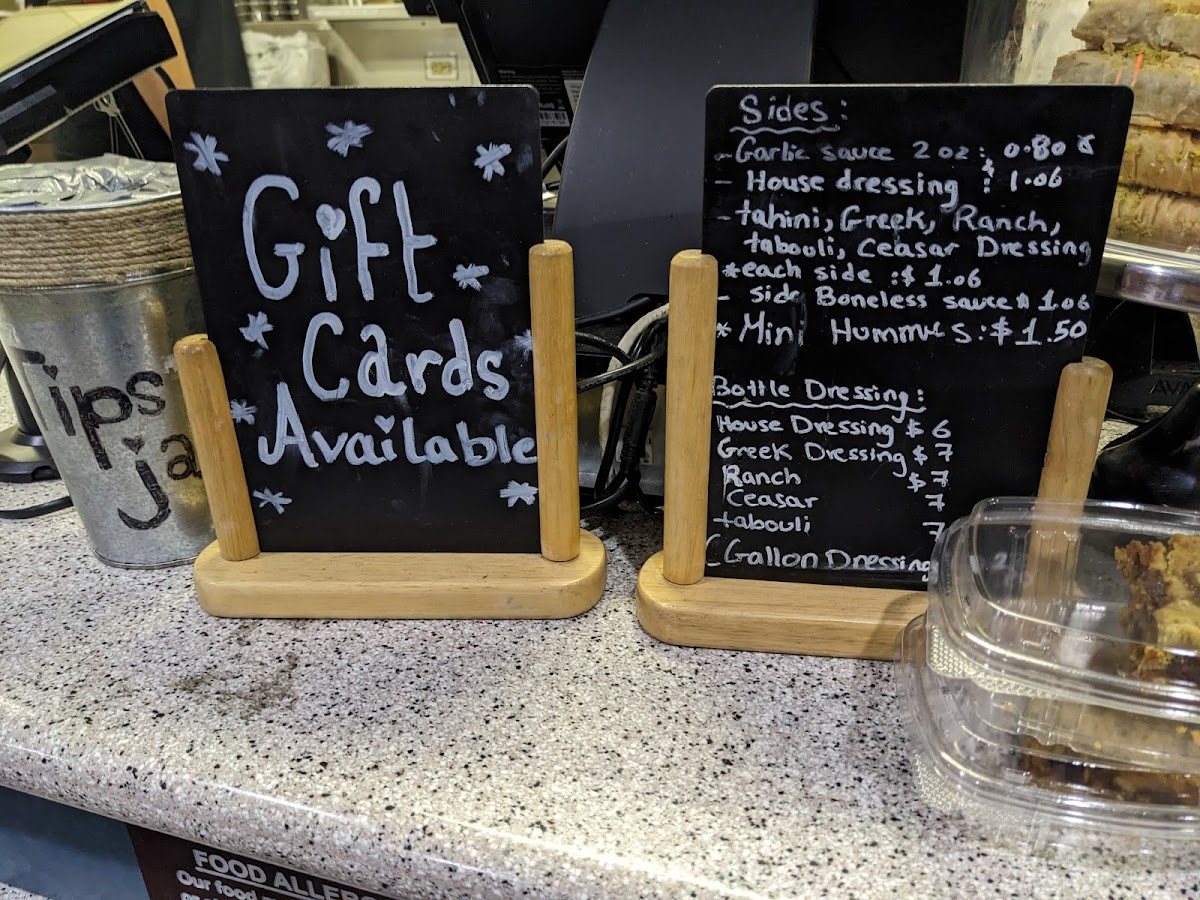 Gift
Cards
Available
Tips
ja
Sides:
- Garlic sauce 2 oz: 0.80 ¢
- House dressing : $1.06
- tahini, Greek, Ranch,
tabouli, Ceasar Dressing
*each side :$ 1.06
- side Boneless sauce $ 1.06
*Mini Hummus:$1.50
Bottle Dressing:
House Dressing $ 6
Greek Dressing $ 7
Ranch $ 7
Ceasar 7
tabouli 7
(Gallon Dressing
FOOD ALLERG
Our food